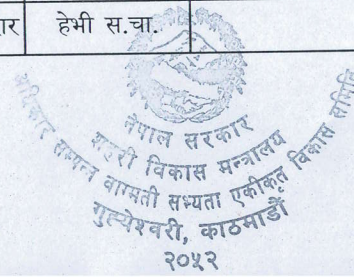 ार हेभी स.चा.
नेपाल सरकार
शहरी विकास मन्त्रालय
अधिकार सम्पन्न वाग्मती सभ्यता एकीकृत विकास समिति
गुह्येश्वरी, काठमाडौं
२०५२